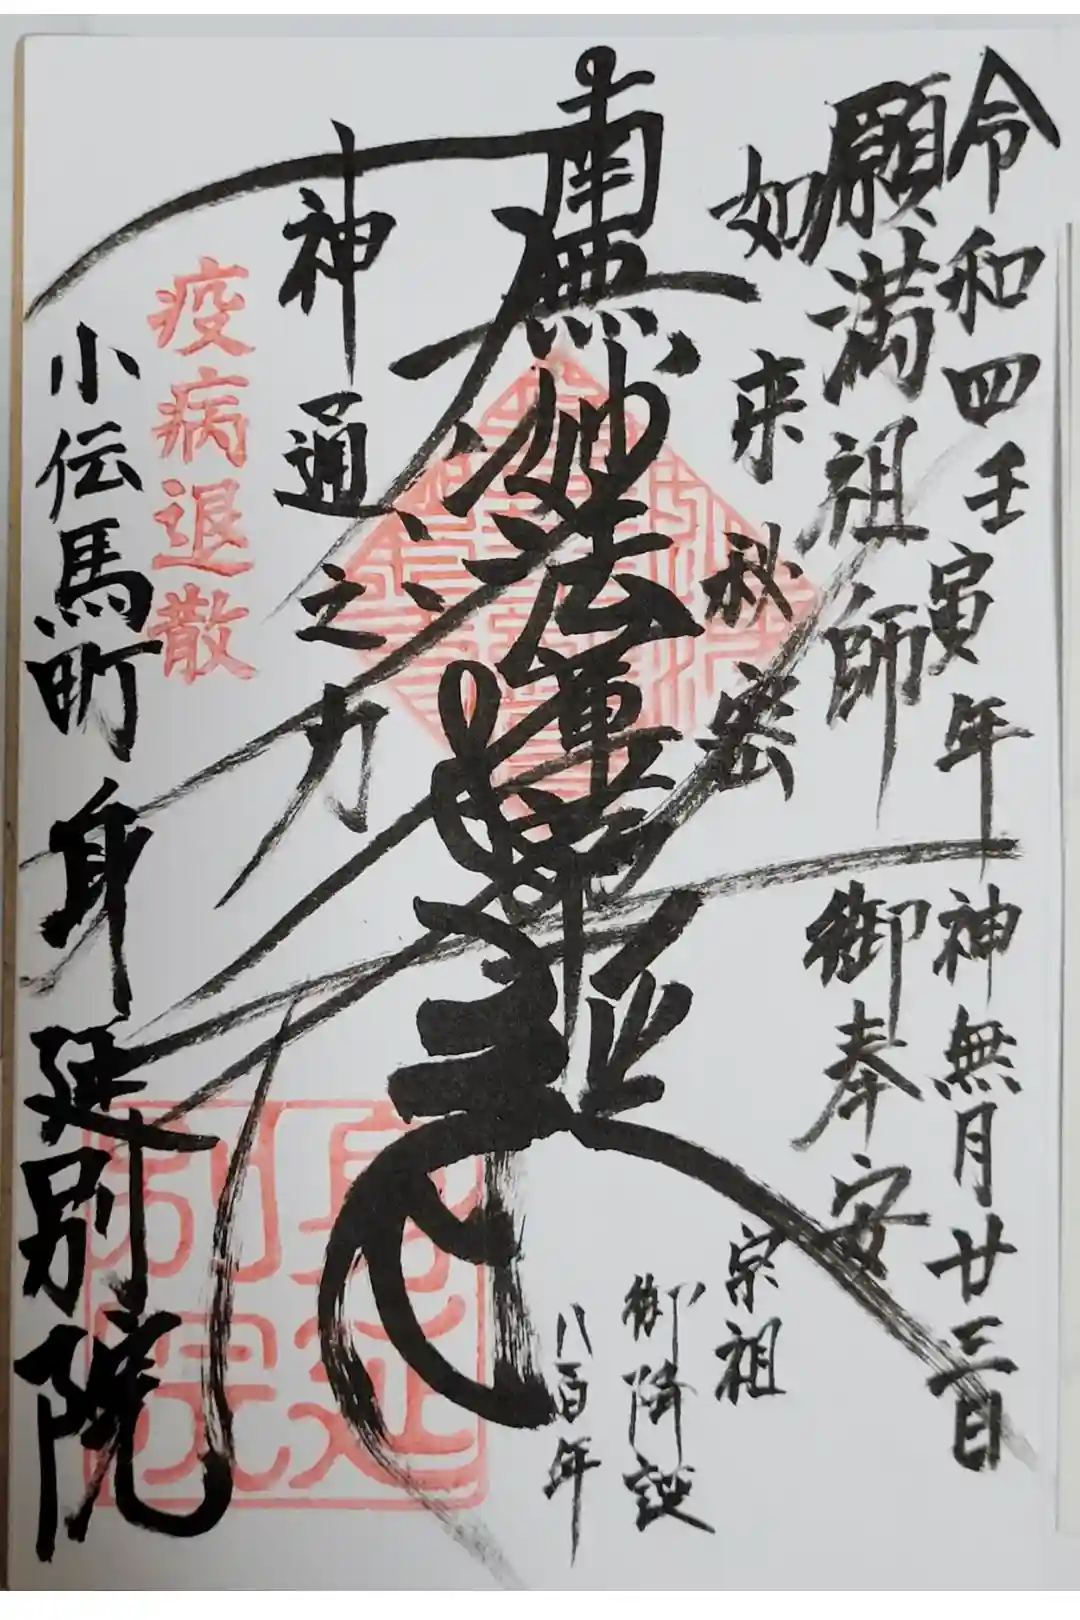 令和四壬寅年神無月廿三日
願満祖師 御奉安
如来秘密
宗祖
御降誕
八百年
南無妙法蓮華経
神通之力
疫病退散
小伝馬町 身延別院
身延別院